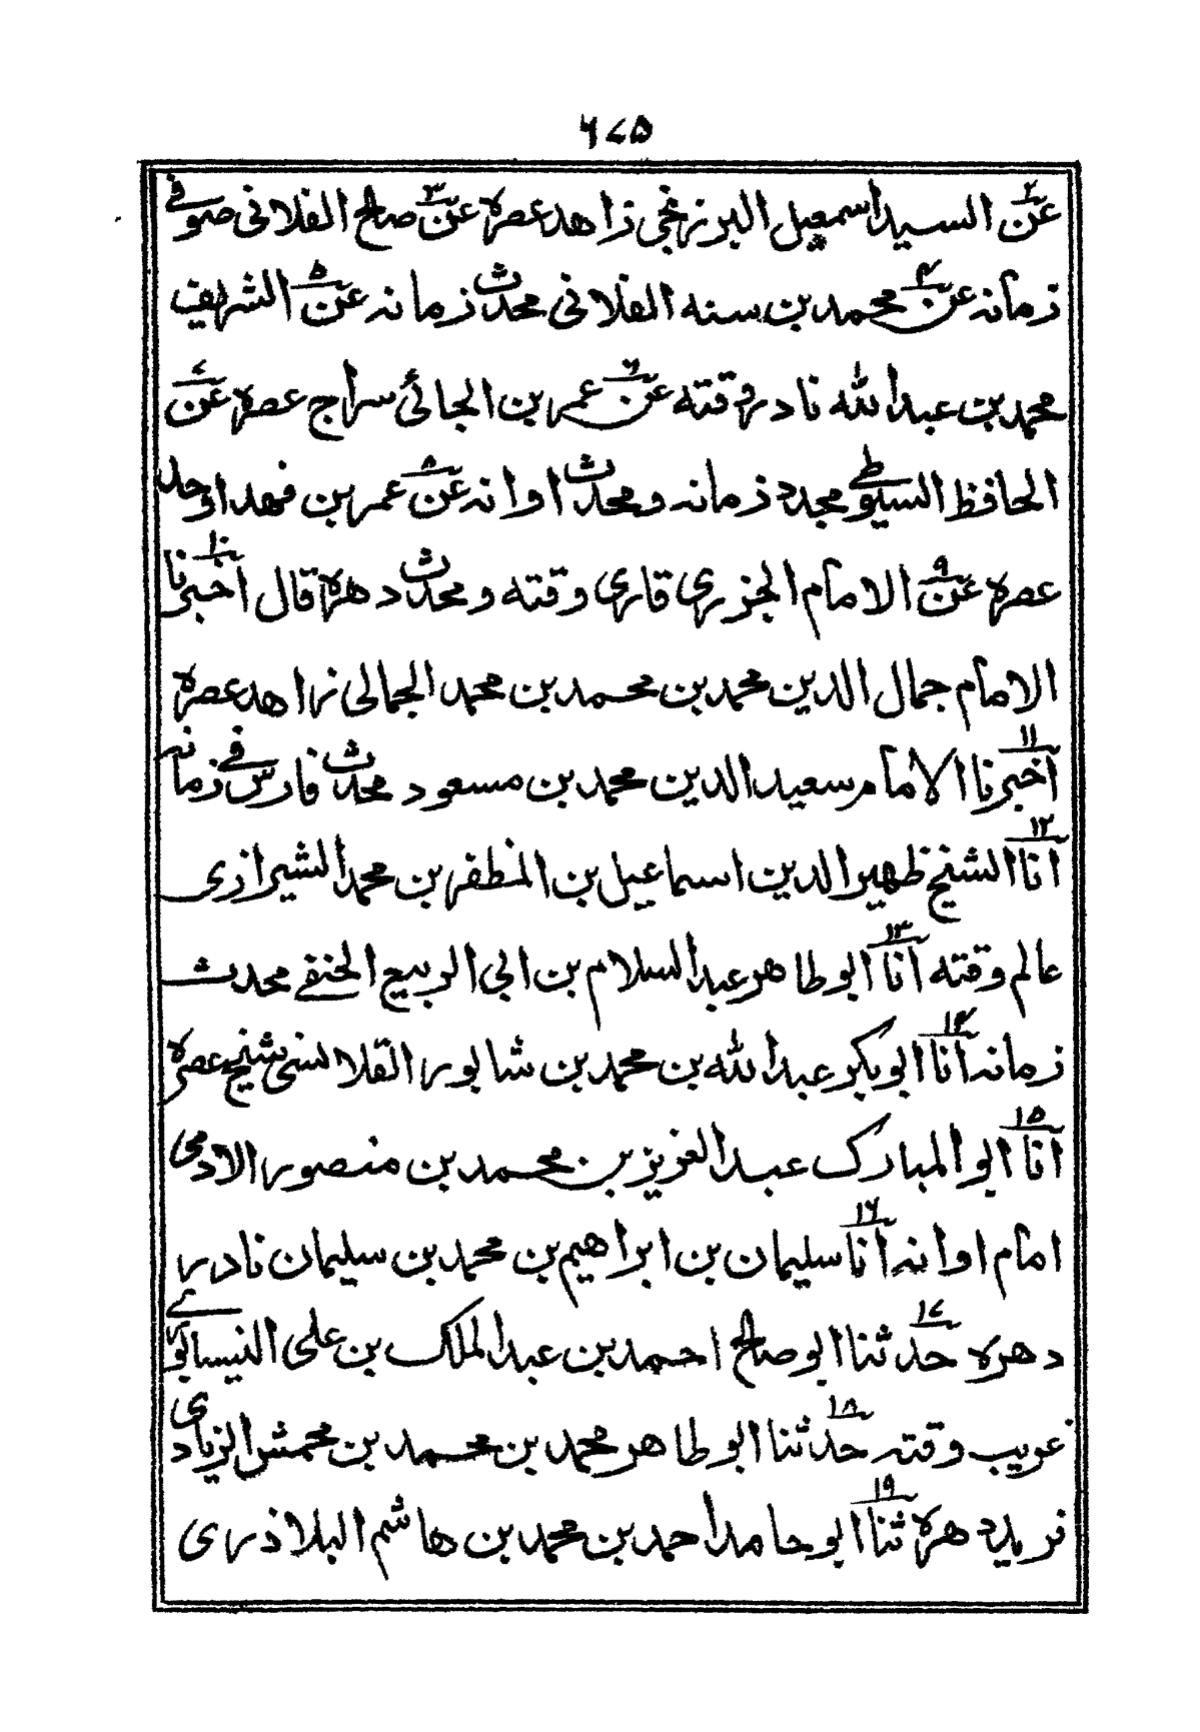 ۶۷۵
عن۲ السید اسمعیل البرزنجی زاهد عصره عن۳ صالح الفلانی صوفی
زمانه عن۴ محمد بن سنه الفلانی محدث زمانه عن۵ الشریف
محمد بن عبد الله نادر وقته عن۶ عمر بن الجائی سراج عصره عن۷
الحافظ السیوطی مجدد زمانه ومحدث اوانه عن۸ عمر بن فهد اوحد
عصره عن۹ الامام الجزری قاری وقته ومحدث دهره قال اخبرنا۱۰
الامام جمال الدین محمد بن محمد بن محمد الجمالی زاهد عصره
اخبرنا۱۱ الامام سعید الدین محمد بن مسعود محدث فارس فی زمانه
انا۱۲ الشیخ ظهیر الدین اسماعیل بن المظفر بن محمد الشیرازی
عالم وقته انا۱۳ ابو طاهر عبد السلام بن ابی الربیع الحنفی محدث
زمانه انا۱۴ ابو بکر عبد الله بن محمد بن شابور القلانسی شیخ عصره
انا۱۵ ابو المبارک عبد العزیز بن محمد بن منصور الادمی
امام اوانه انا۱۶ سلیمان بن ابراهیم بن محمد بن سلیمان نادر
دهره حدثنا۱۷ ابو صالح احمد بن عبد الملک بن علی النیسابوری
غریب وقته حدثنا۱۸ ابو طاهر محمد بن محمد بن محمش الزیادی
فرید دهره ثنا۱۹ ابو حامد احمد بن محمد بن هاشم البلاذری